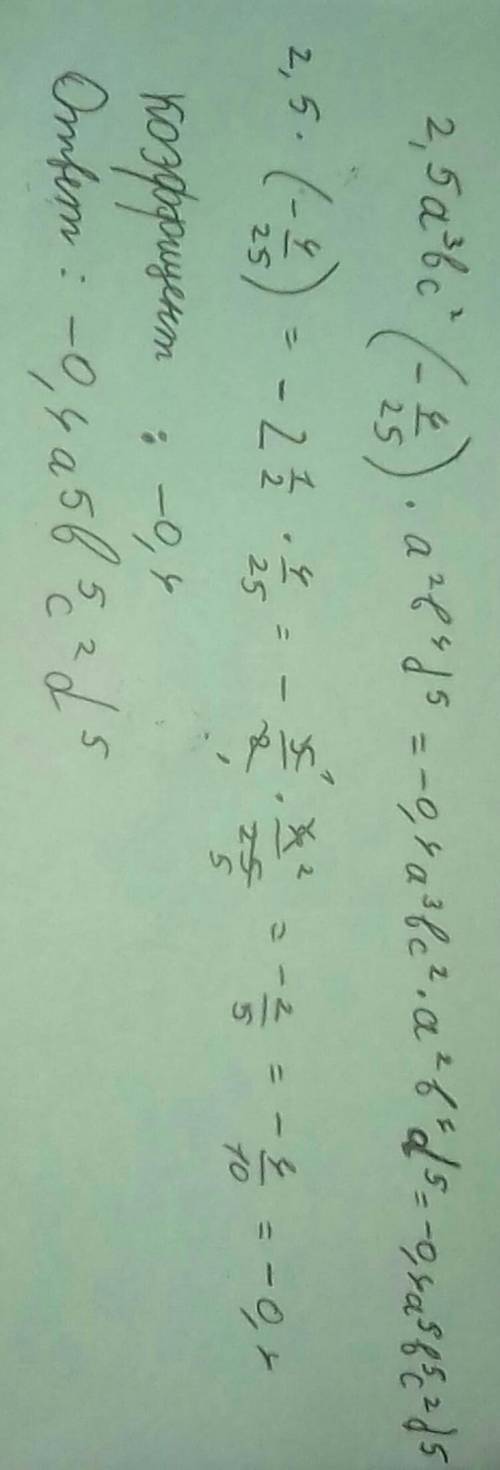 2,5a³bc² (-4/25) · a²b⁴d⁵ = -0,4a³bc² · a²b⁴d⁵ = -0,4a⁵b⁵c²d⁵
2,5 · (-4/25) = -2 1/2 · 4/25 = - 5¹/2₁ · 4²/25₅ = -2/5 = -4/10 = -0,4
Коэффициент : -0,4
Ответ : -0,4a⁵b⁵c²d⁵